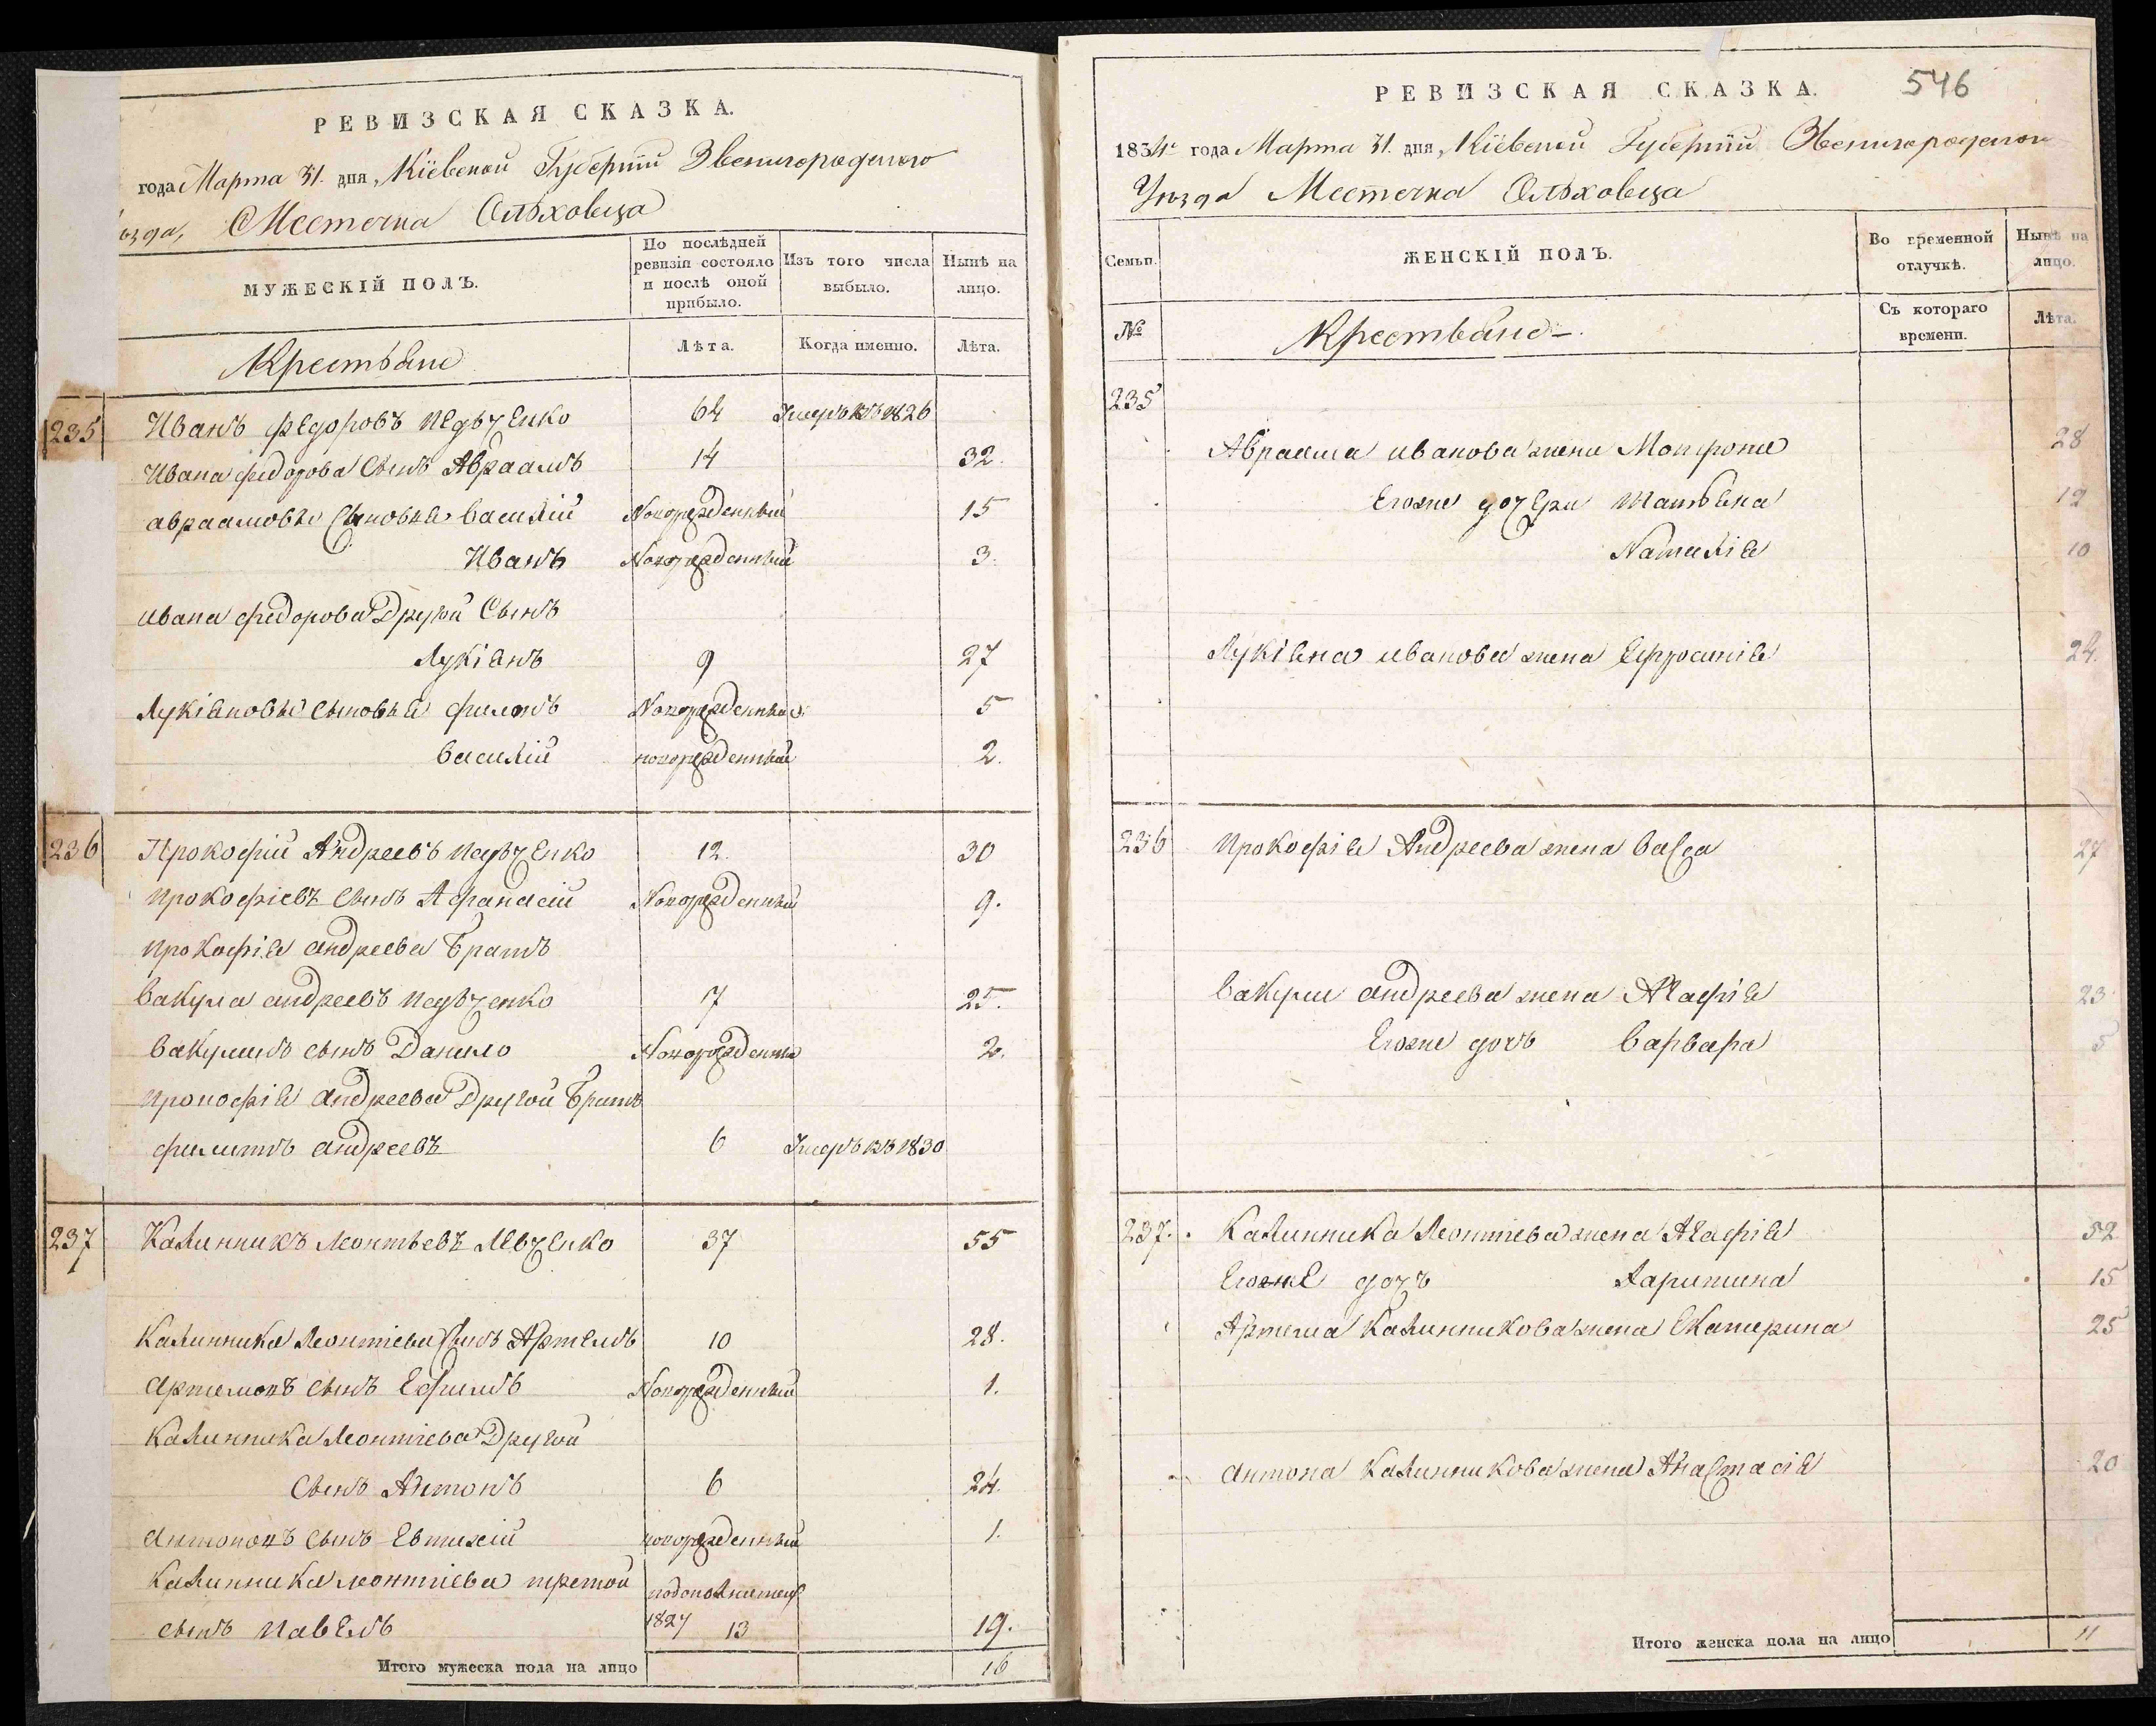 РЕВИЗСКАЯ СКАЗКА.
года Марта 31. дня, Кіевской Губерніи Звенигородского
ѣзда, Местечка Ольховца
МУЖЕСКІЙ ПОЛЪ.
По послѣдней ревизіи состояло и послѣ оной прибыло.
Изъ того числа выбыло.
Нынѣ на лицо.
Крестьяне
Лѣта.
Когда именно.
Лѣта.
235 Иванъ Федоровъ 64 Умеръ въ 1826
Ивана Федорова Сынъ Авраамъ 14 32.
Авраамовы Сыновья Василій Новорожденный 15
Иванъ Новорожденный 3.
Ивана Федорова Другой Сынъ
Лукіянъ 9 27
Лукіяновы Сыновья Новорожденный 5
Василій новорожденный 2.
236 Прокофій Андреевъ 12. 30
Прокофіевъ Сынъ Афанасій Новорожденный 9.
Прокофія Андреева Братъ
Вакула Андреевъ 7 25.
Вакулинъ сынъ Данило Новорожденны 2.
Прокофія Андреева Другой Братъ
Филиппъ Андреевъ 6 Умеръ въ 1830
237 Калинникъ Леонтьевъ Левченко 37 55
Калинника Леонтіева Сынъ Артемъ 10 28.
Артемовъ сынъ Ефимъ Новорожденный 1.
Калинника Леонтіева Другой
Сынъ Антонъ 6 24.
Антоновъ Сынъ Евтихій новорожденный 1.
Калинника Леонтіева третой
сынъ Павелъ 1827 13 19.
Итого мужеска пола на лицо 16
РЕВИЗСКАЯ СКАЗКА. 546
1834 года Марта 31. дня, Кіевской Губерніи Звенигородского
Уѣзда Местечка Ольховца
Семьи.
ЖЕНСКІЙ ПОЛЪ.
Во временной отлучкѣ.
Нынѣ на лицо.
№
Крестьяне
Съ котораго времени.
Лѣта.
235
Авраама Иванова жена Мотроне 28
Егоже дочери Татьяна 12
Наталія 10
Лукіяна Иванова жена Ефросинія 24.
236 Прокофія Андреева жена Васса 27
Вакулы Андреева жена Агафія 23
Егоже дочъ Варвара 5
237. Калинника Леонтіева жена Агафія 52
Егоже дочъ 15
Артема Калинникова жена Екатерина 25
Антона Калинникова жена Анастасія 20
Итого женска пола на лицо 11